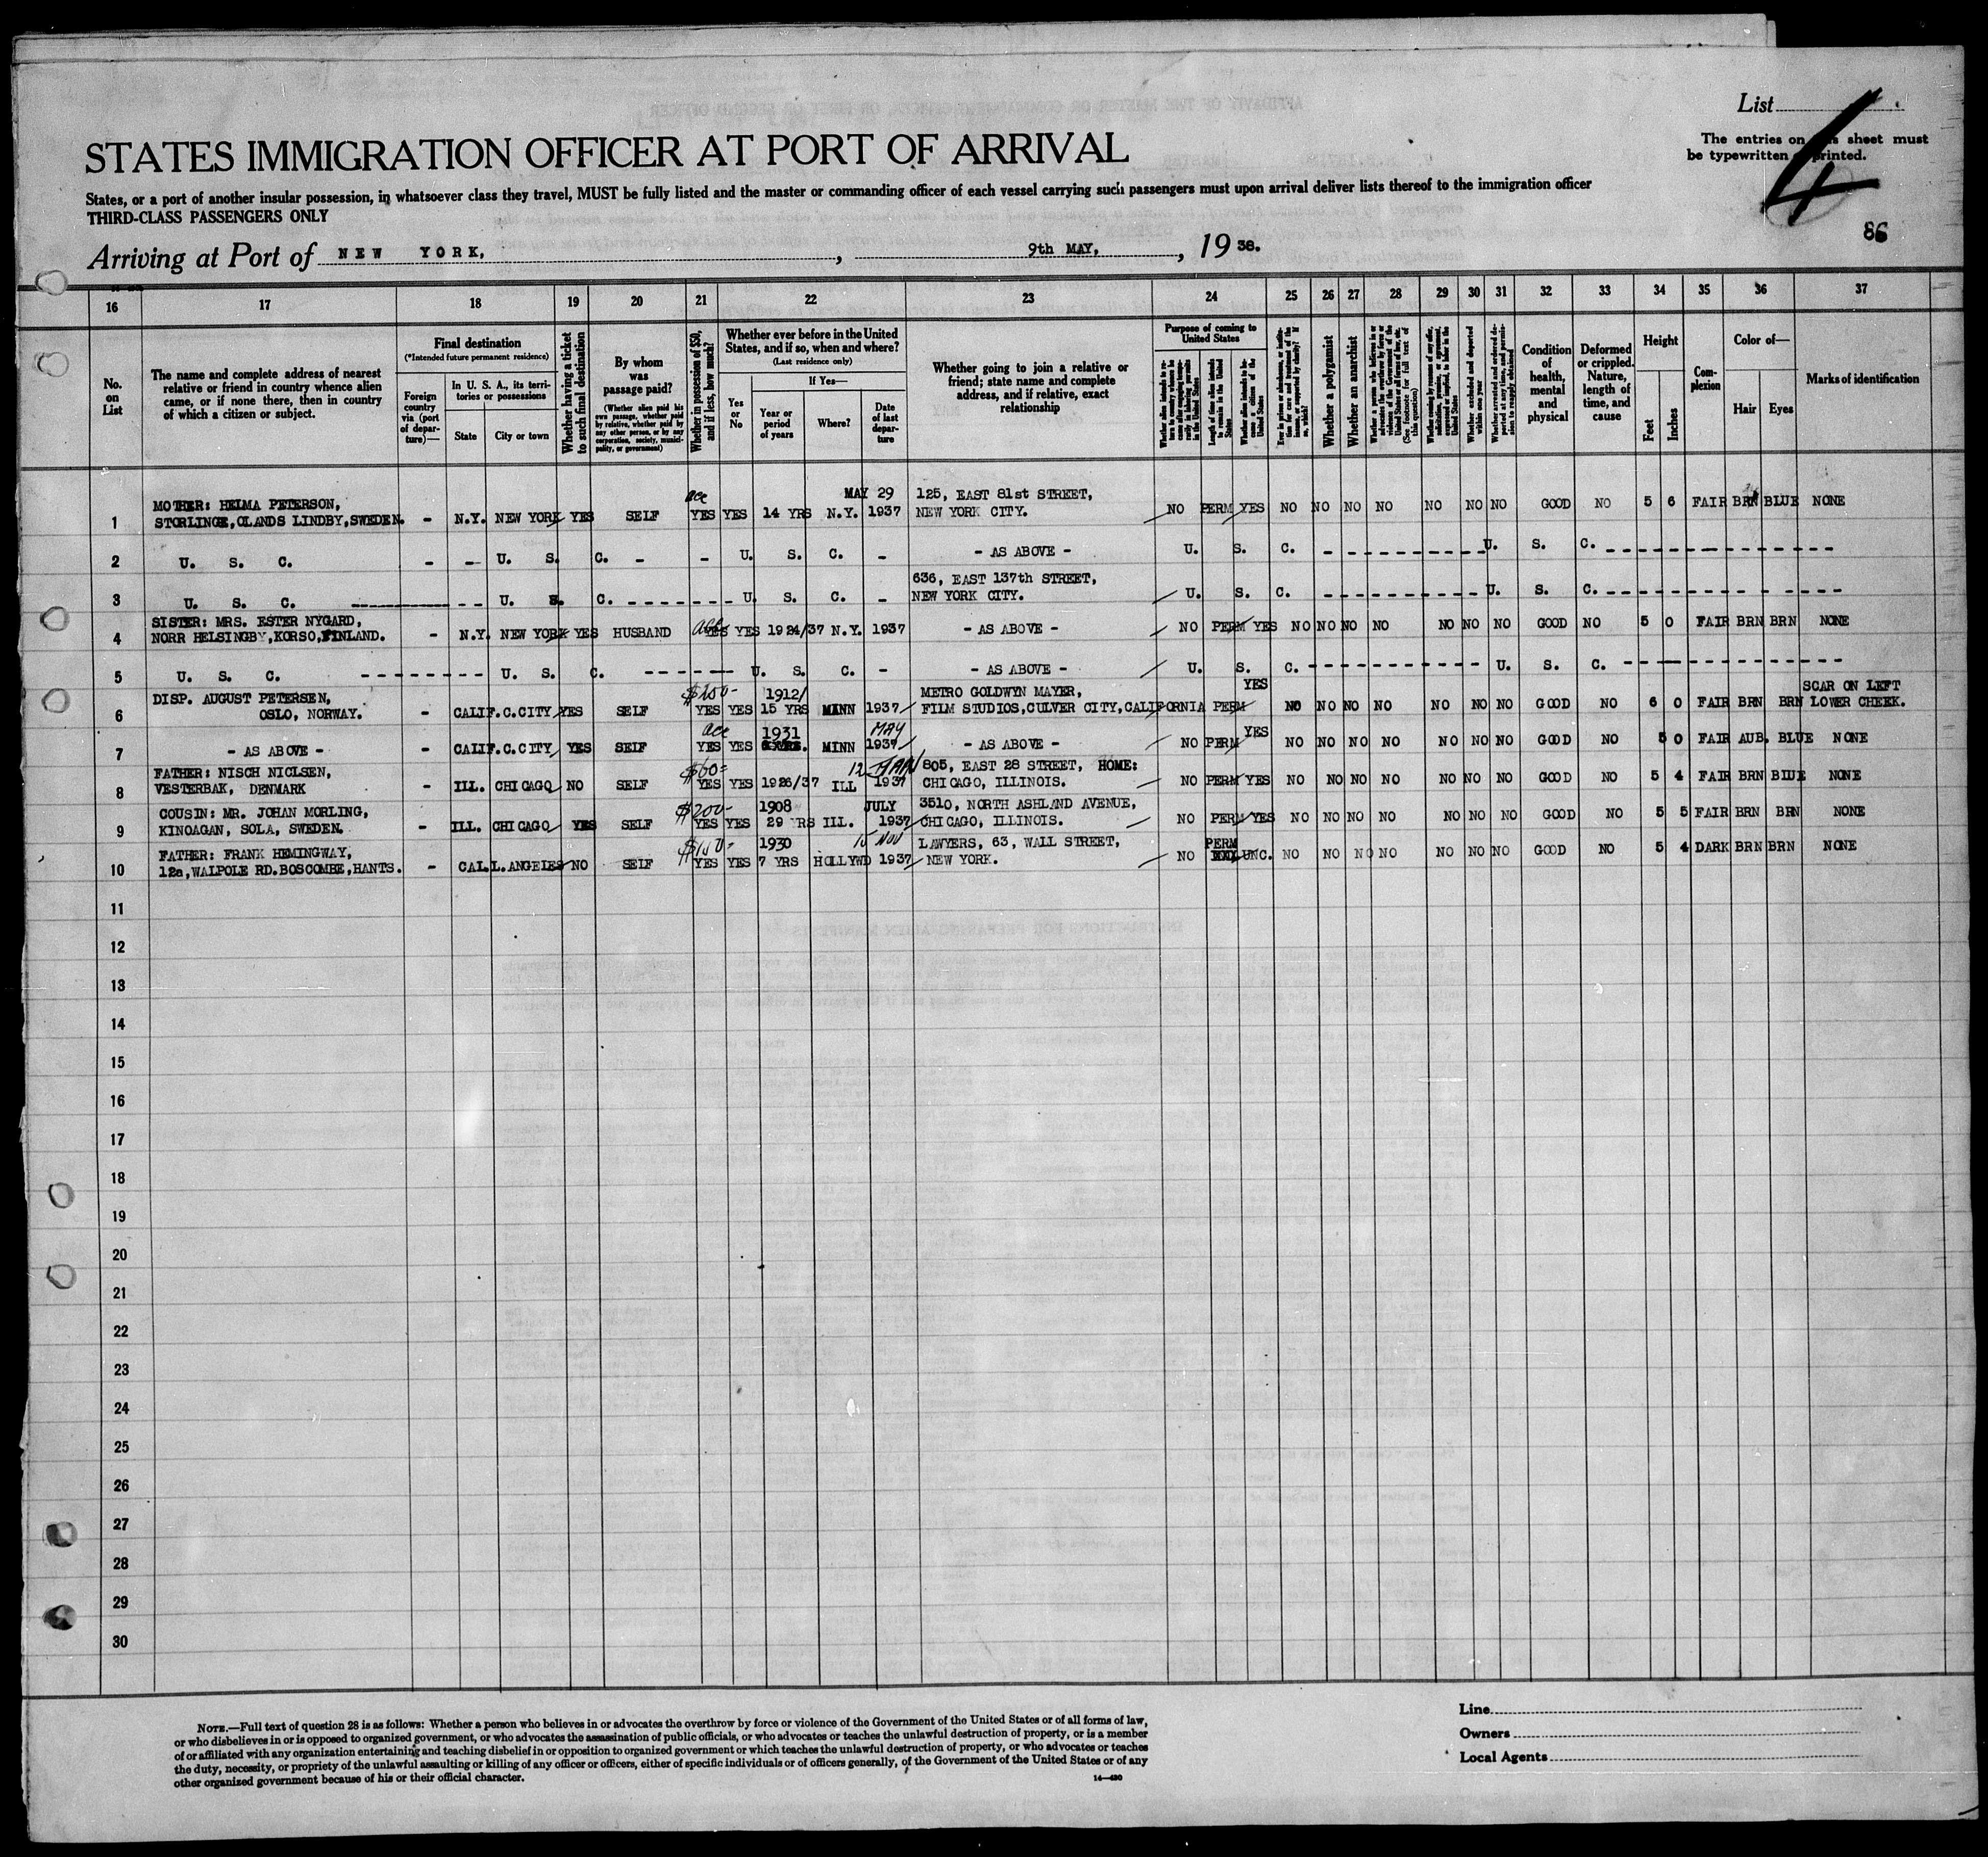 List
The entries on this sheet must
be typewritten or printed.
4
86
STATES IMMIGRATION OFFICER AT PORT OF ARRIVAL
States, or a port of another insular possession, in whatsoever class they travel, MUST be fully listed and the master or commanding officer of each vessel carrying such passengers must upon arrival deliver lists thereof to the immigration officer
THIRD-CLASS PASSENGERS ONLY
Arriving at Port of NEW YORK, , 9th MAY, , 19 38.
16 17 18 19 20 21 22 23 24 25 26 27 28 29 30 31 32 33 34 35 36 37
No.
on
List
The name and complete address of nearest
relative or friend in country whence alien
came, or if none there, then in country
of which a citizen or subject.
Final destination
(*Intended future permanent residence)
Foreign
country
via (port
of depar-
ture)—
In U. S. A., its terri-
tories or possessions
State
City or town
Whether having a ticket
to such final destination
By whom
was
passage paid?
(Whether alien paid his
own passage, whether paid
by relative, whether paid by
any other person, or by any
corporation, society, munici-
pality, or government)
Whether in possession of $50,
and if less, how much?
Whether ever before in the United
States, and if so, when and where?
(Last residence only)
Yes
or
No
If Yes—
Year or
period
of years
Where?
Date
of last
depar-
ture
Whether going to join a relative or
friend; state name and complete
address, and if relative, exact
relationship
Purpose of coming to
United States
Whether a polygamist
Whether an anarchist
Condition
of
health,
mental
and
physical
Deformed
or crippled.
Nature,
length of
time, and
cause
Height
Feet
Inches
Com-
plexion
Color of—
Hair
Eyes
Marks of identification
MOTHER: HELMA PETERSON, acc MAY 29 125, EAST 81st STREET,
1 STORLINGE, OLANDS LINDBY, SWEDEN. - N.Y. NEW YORK YES SELF YES YES 14 YRS N.Y. 1937 NEW YORK CITY. NO PERM YES NO NO NO NO NO NO NO GOOD NO 5 6 FAIR BRN BLUE NONE
2 U. S. C. - - U. S. C. - - U. S. C. - - AS ABOVE - U. S. C. - U. S. C.
636, EAST 137th STREET,
3 U. S. C. - - U. S. C. - U. S. C. - NEW YORK CITY. U. S. C. - U. S. C.
SISTER: MRS. ESTER NYGARD,
4 NORR HELSINGBY, KORSO, FINLAND. - N.Y. NEW YORK YES HUSBAND acc YES YES 1924/37 N.Y. 1937 - AS ABOVE - NO PERM YES NO NO NO NO NO NO NO GOOD NO 5 0 FAIR BRN BRN NONE
5 U. S. C. - U. S. C. - U. S. C. - - AS ABOVE - U. S. C. - U. S. C.
DISP. AUGUST PETERSEN, 1912/ METRO GOLDWYN MAYER, YES SCAR ON LEFT
6 OSLO, NORWAY. - CALIF. C.CITY YES SELF YES YES 15 YRS MINN 1937 FILM STUDIOS, CULVER CITY, CALIFORNIA PERM NO NO NO NO NO NO NO GOOD NO 6 0 FAIR BRN BRN LOWER CHEEK.
acc 1931 MAY YES
7 - AS ABOVE - - CALIF. C.CITY YES SELF YES YES MINN 1937 - AS ABOVE - NO PERM NO NO NO NO NO NO NO GOOD NO 5 0 FAIR AUB. BLUE NONE
FATHER: NISCH NICLSEN, $60= 12-JAN 805, EAST 28 STREET, HOME:
8 VESTERBAK, DENMARK - ILL. CHICAGO NO SELF YES YES 1926/37 ILL 1937 CHICAGO, ILLINOIS. NO PERM YES NO NO NO NO NO NO NO GOOD NO 5 4 FAIR BRN BLUE NONE
COUSIN: MR. JOHAN MORLING, $200- 1908 JULY 3510, NORTH ASHLAND AVENUE,
9 KINOAGAN, SOLA, SWEDEN. - ILL. CHICAGO YES SELF YES YES 29 YRS ILL. 1937 CHICAGO, ILLINOIS. NO PERM YES NO NO NO NO NO NO NO GOOD NO 5 5 FAIR BRN BRN NONE
FATHER: FRANK HEMINGWAY, 1930 15 NOV LAWYERS, 63, WALL STREET, PERM
10 12a, WALPOLE RD. BOSCOMBE, HANTS. - CAL. L.ANGELES NO SELF YES YES 7 YRS HOLLYWD 1937 NEW YORK. NO UNC. NO NO NO NO NO NO NO GOOD NO 5 4 DARK BRN BRN NONE
11
12
13
14
15
16
17
18
19
20
21
22
23
24
25
26
27
28
29
30
NOTE.—Full text of question 28 is as follows: Whether a person who believes in or advocates the overthrow by force or violence of the Government of the United States or of all forms of law,
or who disbelieves in or is opposed to organized government, or who advocates the assassination of public officials, or who advocates or teaches the unlawful destruction of property, or is a member
of or affiliated with any organization entertaining and teaching disbelief in or opposition to organized government or which teaches the unlawful destruction of property, or who advocates or teaches
the duty, necessity, or propriety of the unlawful assaulting or killing of any officer or officers, either of specific individuals or of officers generally, of the Government of the United States or of any
other organized government because of his or their official character.
14—430
Line
Owners
Local Agents